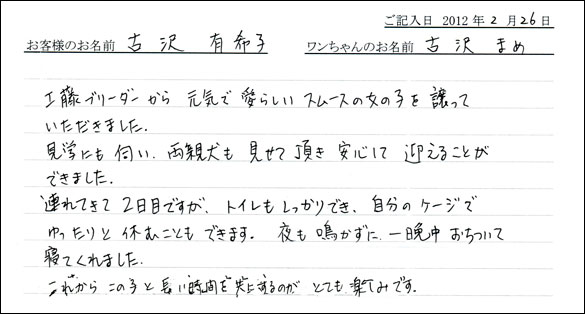 ご記入日 2012年2月26日
お客様のお名前 古沢 有希子 ワンちゃんのお名前 古沢 まめ
工藤ブリーダーから 元気で愛らしいスムースの女の子を譲って
いただきました.
見学にも伺い、両親犬も見せて頂き安心して 迎えることが
できました.
連れてきて2日目ですが、トイレもしっかりでき、自分のケージで
ゆったりと休むこともできます。 夜も鳴かずに、一晩中おちついて
寝てくれました.
これから この子と長い時間を共にするのが とても楽しみです.